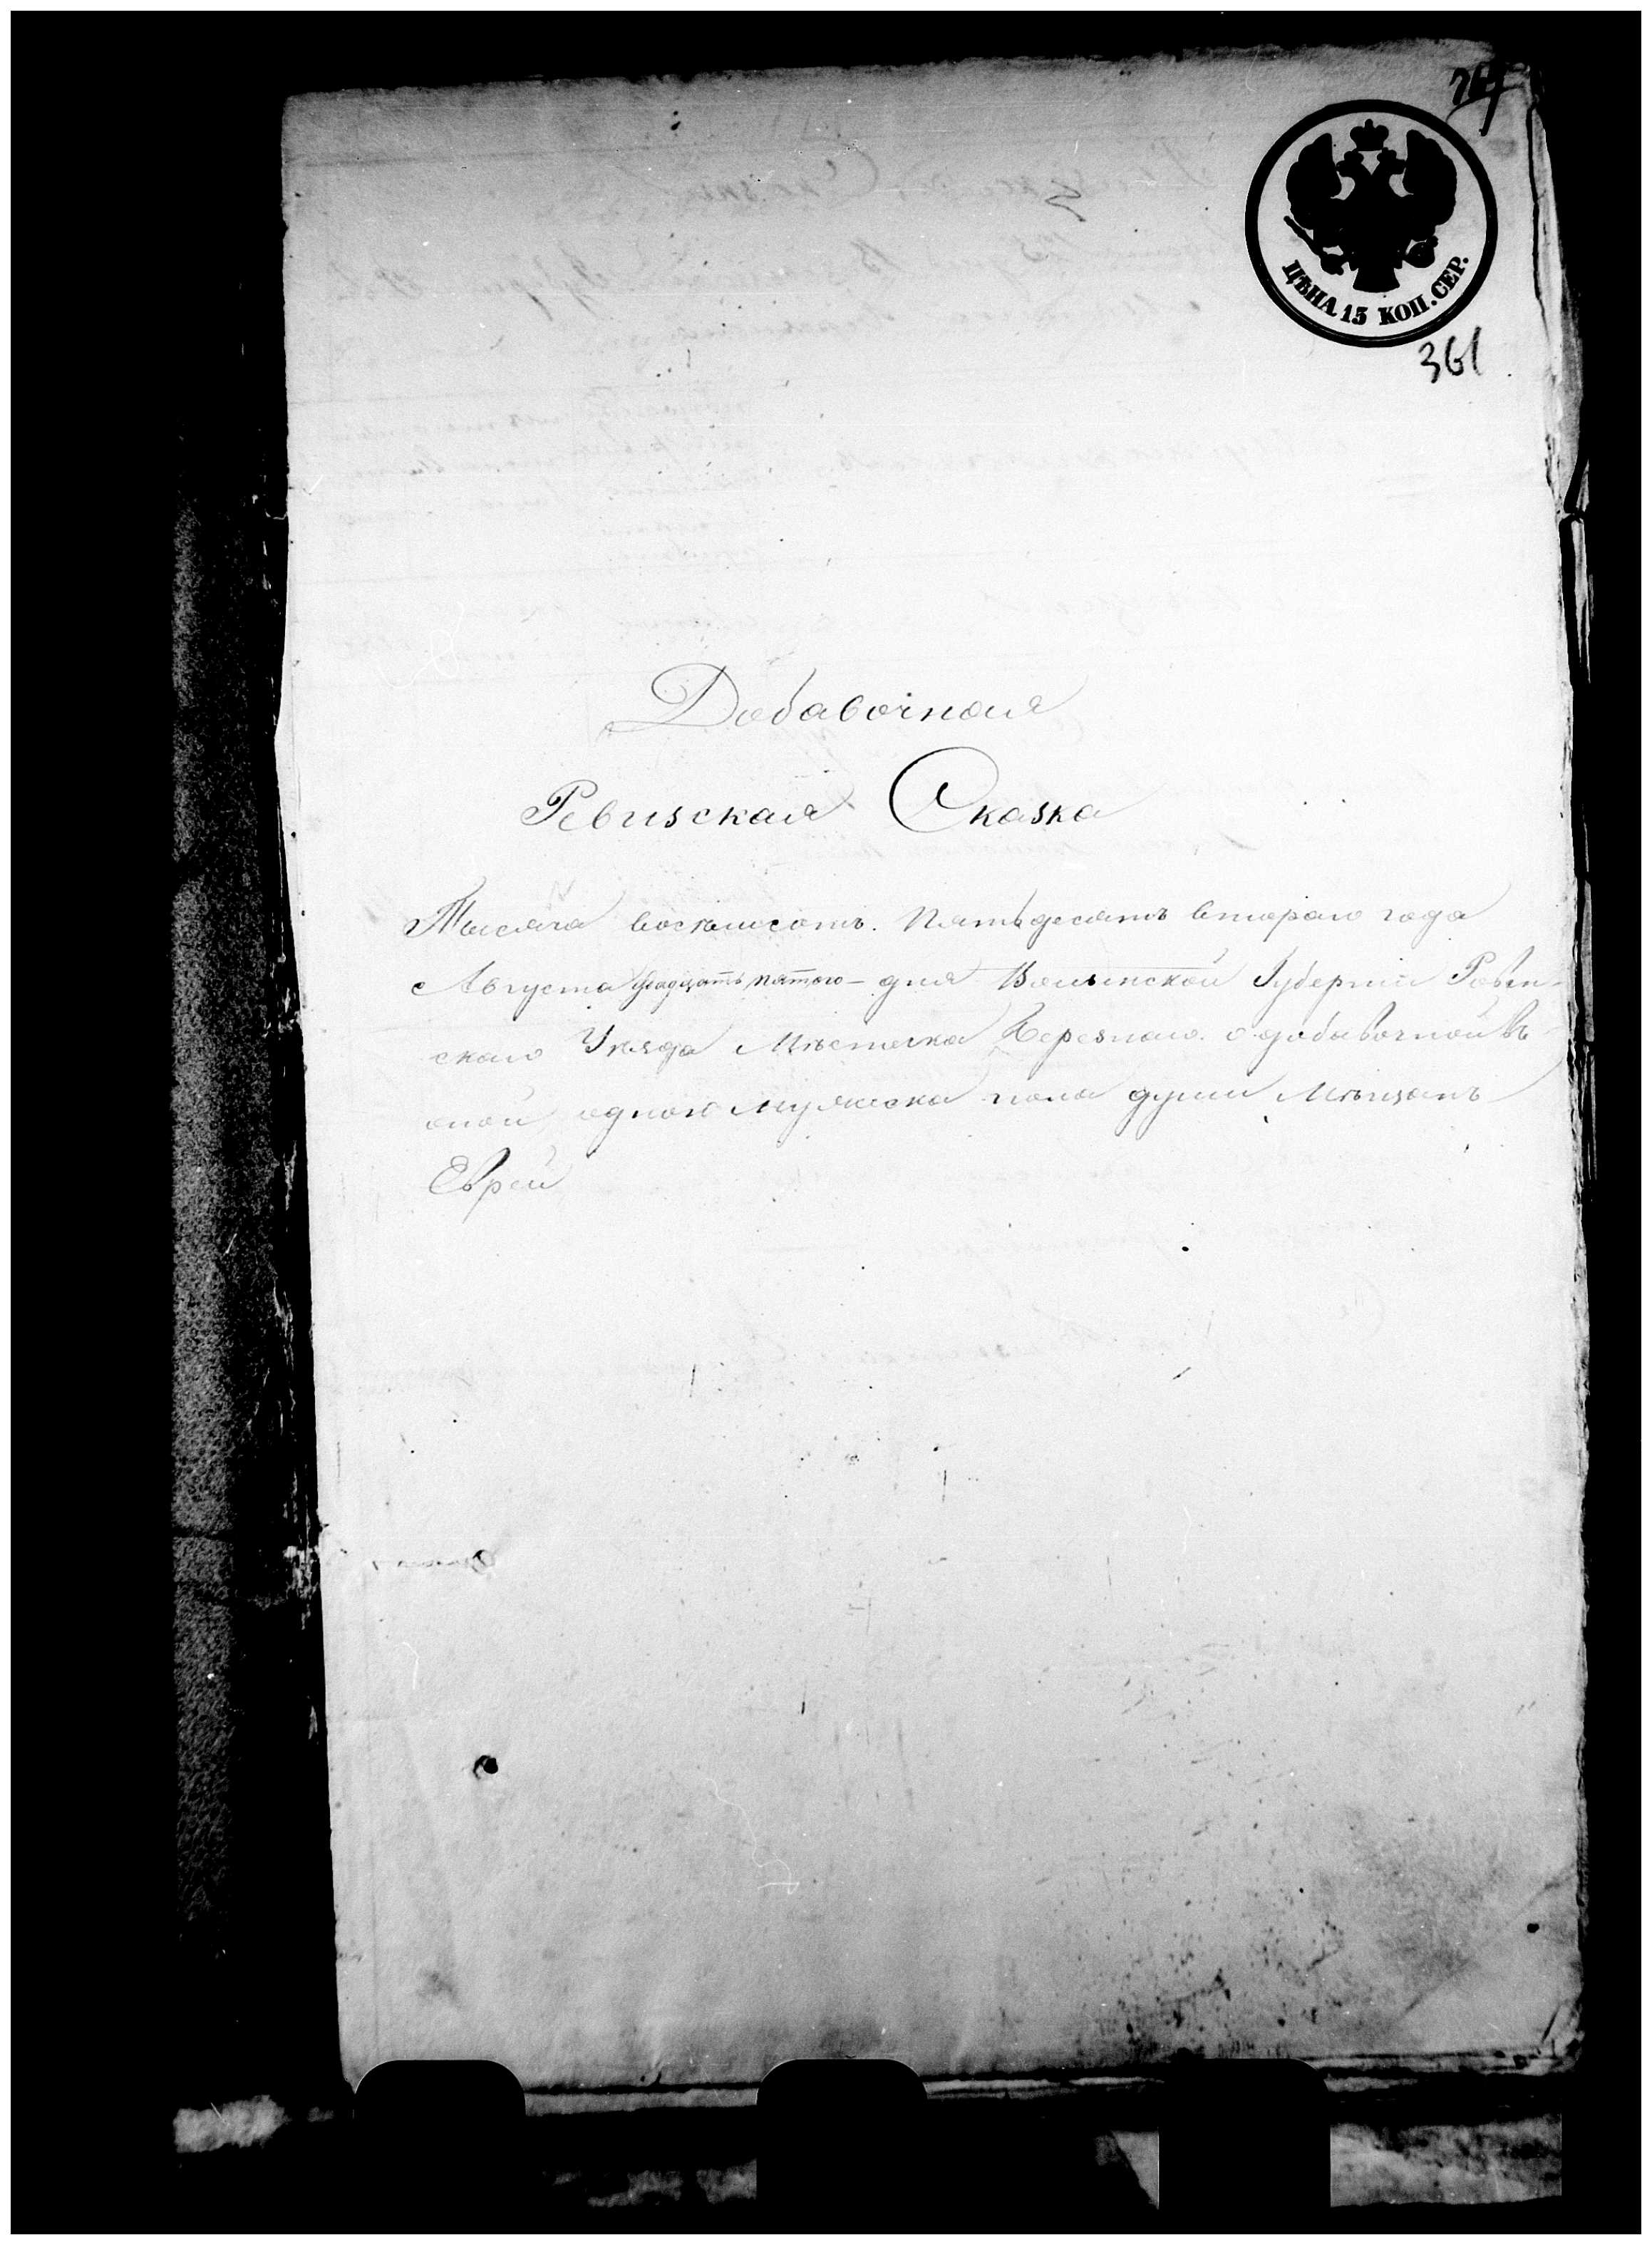 ЦѢНА 15 КОП. СЕР.
361
Добавочная
Ревизская Сказка
Тысяча восемьсотъ. Пятьдесятъ втораго года
Августа двадцать пятого – дня Волынской Губерніи Ровен-
скаго Уѣзда Мѣстечка Березнаго о добавочной въ
оной одной мужеска пола души Мѣщанъ
Еврей